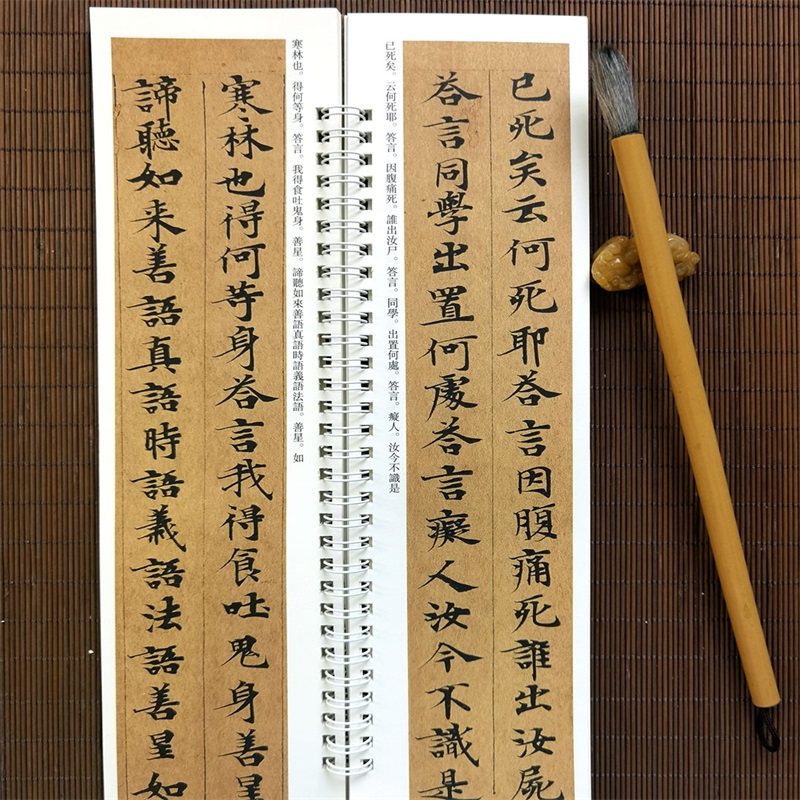 已死矣云何死耶荅言因腹痛死誰出汝屍
荅言同學出置何處荅言癡人汝今不識是
已死矣。云何死耶。答言。因腹痛死。誰出汝尸。答言。同學。出置何處。答言。癡人。汝今不識是
寒林也。得何等身。答言。我得食吐鬼身。善星。諦聽如來善語真語時語義語法語。善星。如
寒林也得何等身荅言我得食吐鬼身善星
諦聽如来善語真語時語義語法語善星如